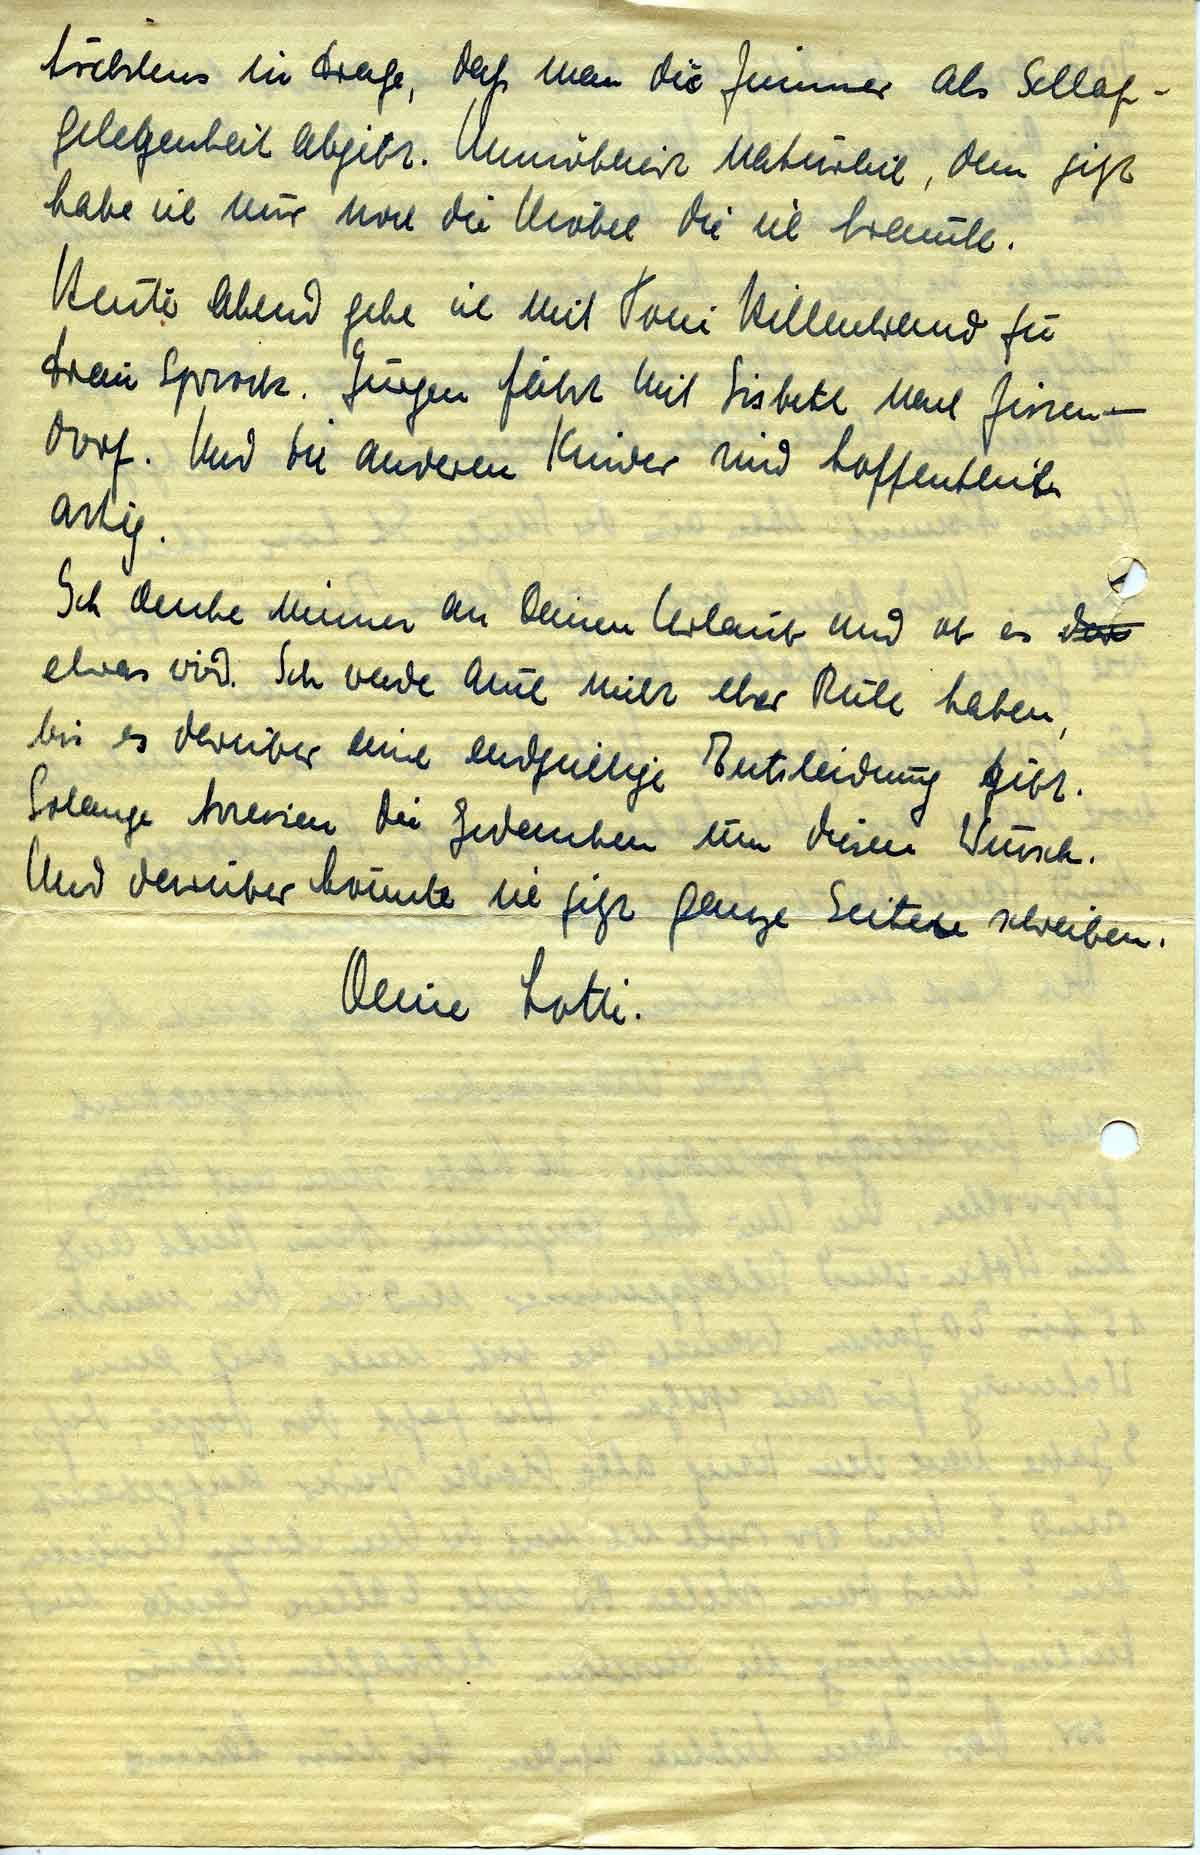 höchstens in Frage, daß man die Zimmer als Schlaf-
gelegenheit abgibt. Unmöbliert natürlich, denn jetzt
habe ich nur noch die Möbel die ich brauche.
Heute Abend gehe ich mit Toni Hillenbrand zu
Frau Sprock. Jürgen fährt mit Lisbeth nach
dorf. Und die anderen Kinder sind hoffentlich
artig.
Ich denke immer an Deinen Urlaub und ob es
etwas wird. Ich werde auch nicht eher Ruhe haben,
bis es darüber eine endgültige Entscheidung gibt.
Solange kreisen die Gedanken um diesen Wunsch.
Und darüber könnte ich jetzt ganze Seiten schreiben.
Deine Lotti.